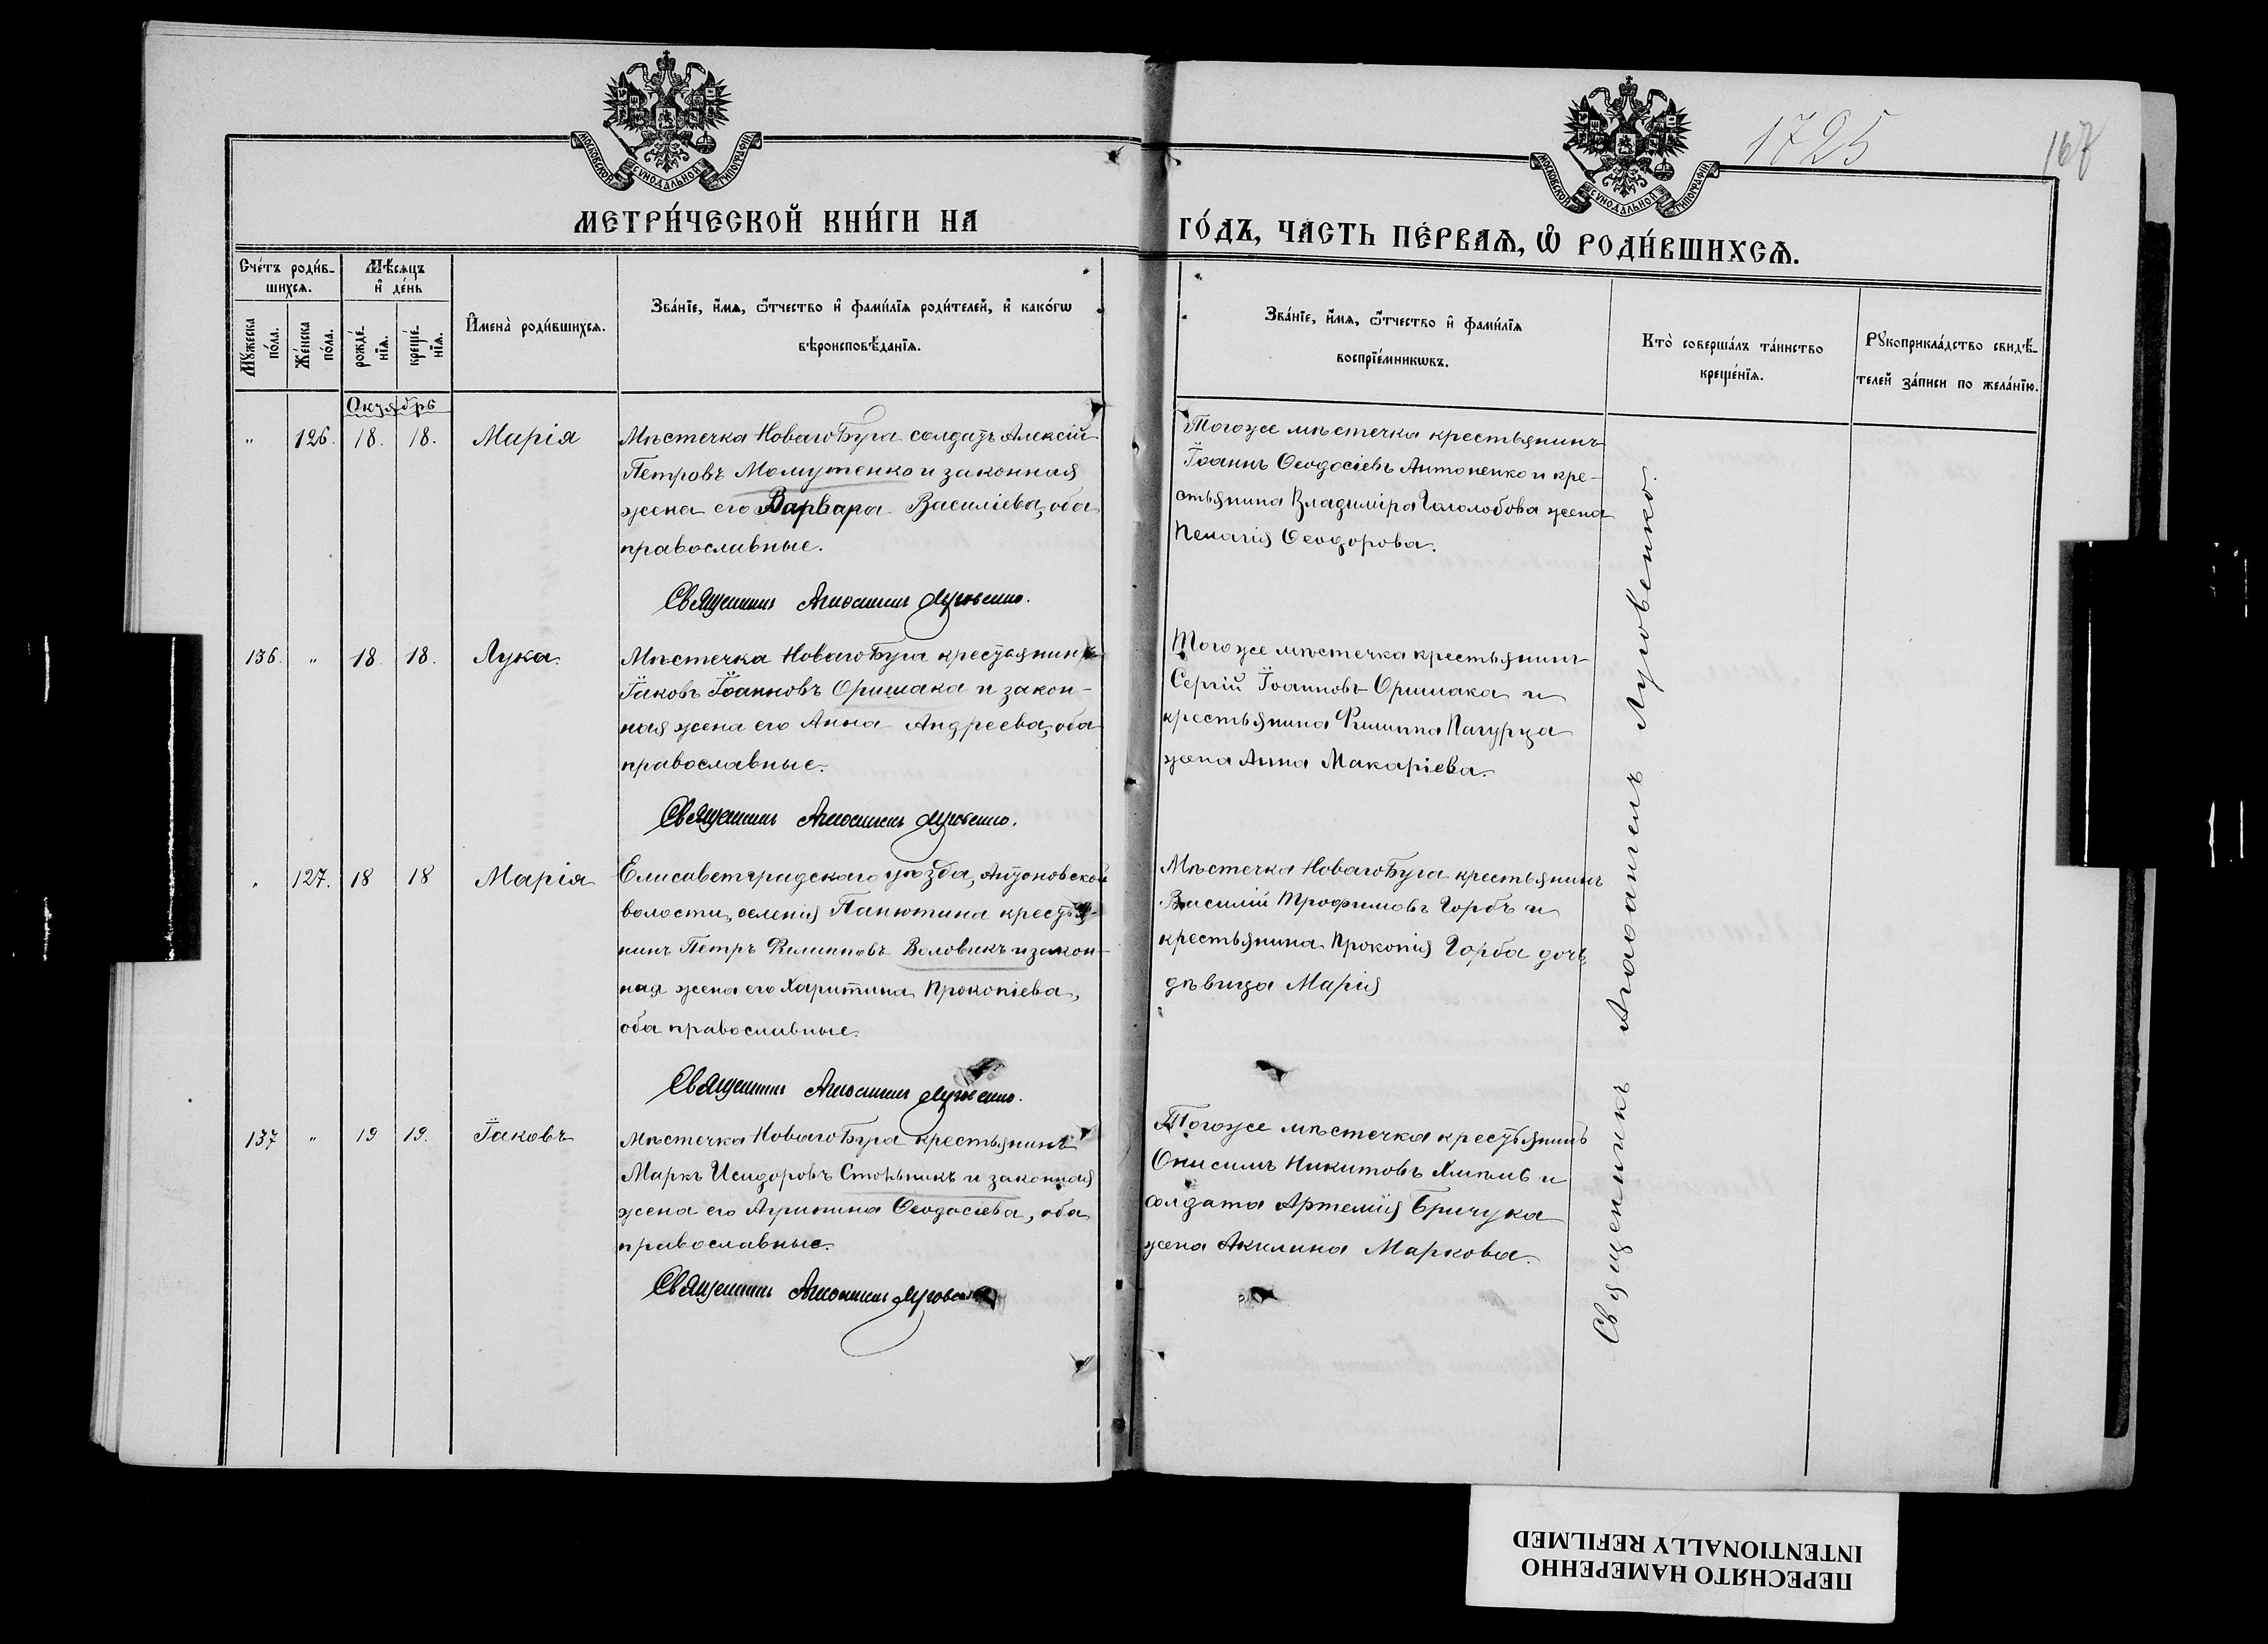 МОСКОВСКОЙ СѴНОДАЛЬНОЙ ТИПОГРАФІИ
МОСКОВСКОЙ СѴНОДАЛЬНОЙ ТИПОГРАФІИ
1725
167
МЕТРИ́ЧЕСКОЙ КНИ́ГИ НА
ГО́ДЪ, ЧАСТЬ ПЕ́РВАѦ, Ѡ РОДИ́ВШИХСѦ.
Сче́тъ роди́в-
шихсѧ.
Мѣ́сѧцъ
и҆ де́нь
Мꙋ́жеска
по́ла.
Же́нска
по́ла.
рожде́-
нїѧ.
креще́-
нїѧ.
И҆мена̀ роди́вшихсѧ.
Зва́нїе, и҆́мѧ, ѻ҆́тчество и҆ фамѝлїѧ роди́телей, и҆ како́гѡ
вѣроисповѣ́данїѧ.
Зва́нїе, и҆́мѧ, ѻ҆́тчество и҆ фами́лїѧ
воспрїе́мникѡвъ.
Кто̀ соверша́лъ та́инство
креще́нїѧ.
Рꙋкоприкла́дство свидѣ́-
телей за́писи по жела́нїю.
Октябрь
" 126. 18. 18. Марія
Мѣстечка Новаго Буга солдатъ Алексій
Петровъ Момутенко и законная
жена его Варвара Василіева, оба
православные.
Священникъ Аѳанасій Луговенко.
Тогоже мѣстечка крестьянинъ
Іоаннъ Ѳеодосіевъ Антоненко и кре-
стьянина Владиміра Гололобова жена
Пелагія Ѳеодорова.
136. " 18. 18. Лука.
Мѣстечка Новаго Буга крестьянинъ
Іаковъ Іоанновъ Оришака и закон-
ная жена его Анна Андреева, оба
православные.
Священникъ Луговенко.
Тогоже мѣстечка крестьянинъ
Сергій Іоанновъ Оришака и
крестьянина Филиппа Пагурца
жена Анна Макаріева.
" 127. 18 18 Марія
Елисаветградскаго уѣзда, Антоновской
волости, селенія Панютина крестья-
нинъ Петръ Филипповъ Воловикъ и закон-
ная жена его Харитина Прокопіева,
оба православные.
Священникъ Луговенко.
Мѣстечка Новаго Буга крестьянинъ
Василій Трофимовъ Горбъ и
крестьянина Прокопія Горба дочь
дѣвица Марія
137 " 19 19. Іаковъ
Мѣстечка Новаго Буга крестьянинъ
Маркъ Исидоровъ Стольникъ и законная
жена его Агрипина Ѳеодосіева, оба
православные.
Священникъ Луговенко
Тогоже мѣстечка крестьянинъ
Онисимъ Никитовъ Хмиль и
солдата Артемія Бричука
жена Акилина Маркова.
Священникъ Луговенко.
ПЕРЕСНЯТО НАМЕРЕННО
INTENTIONALLY REFILMED